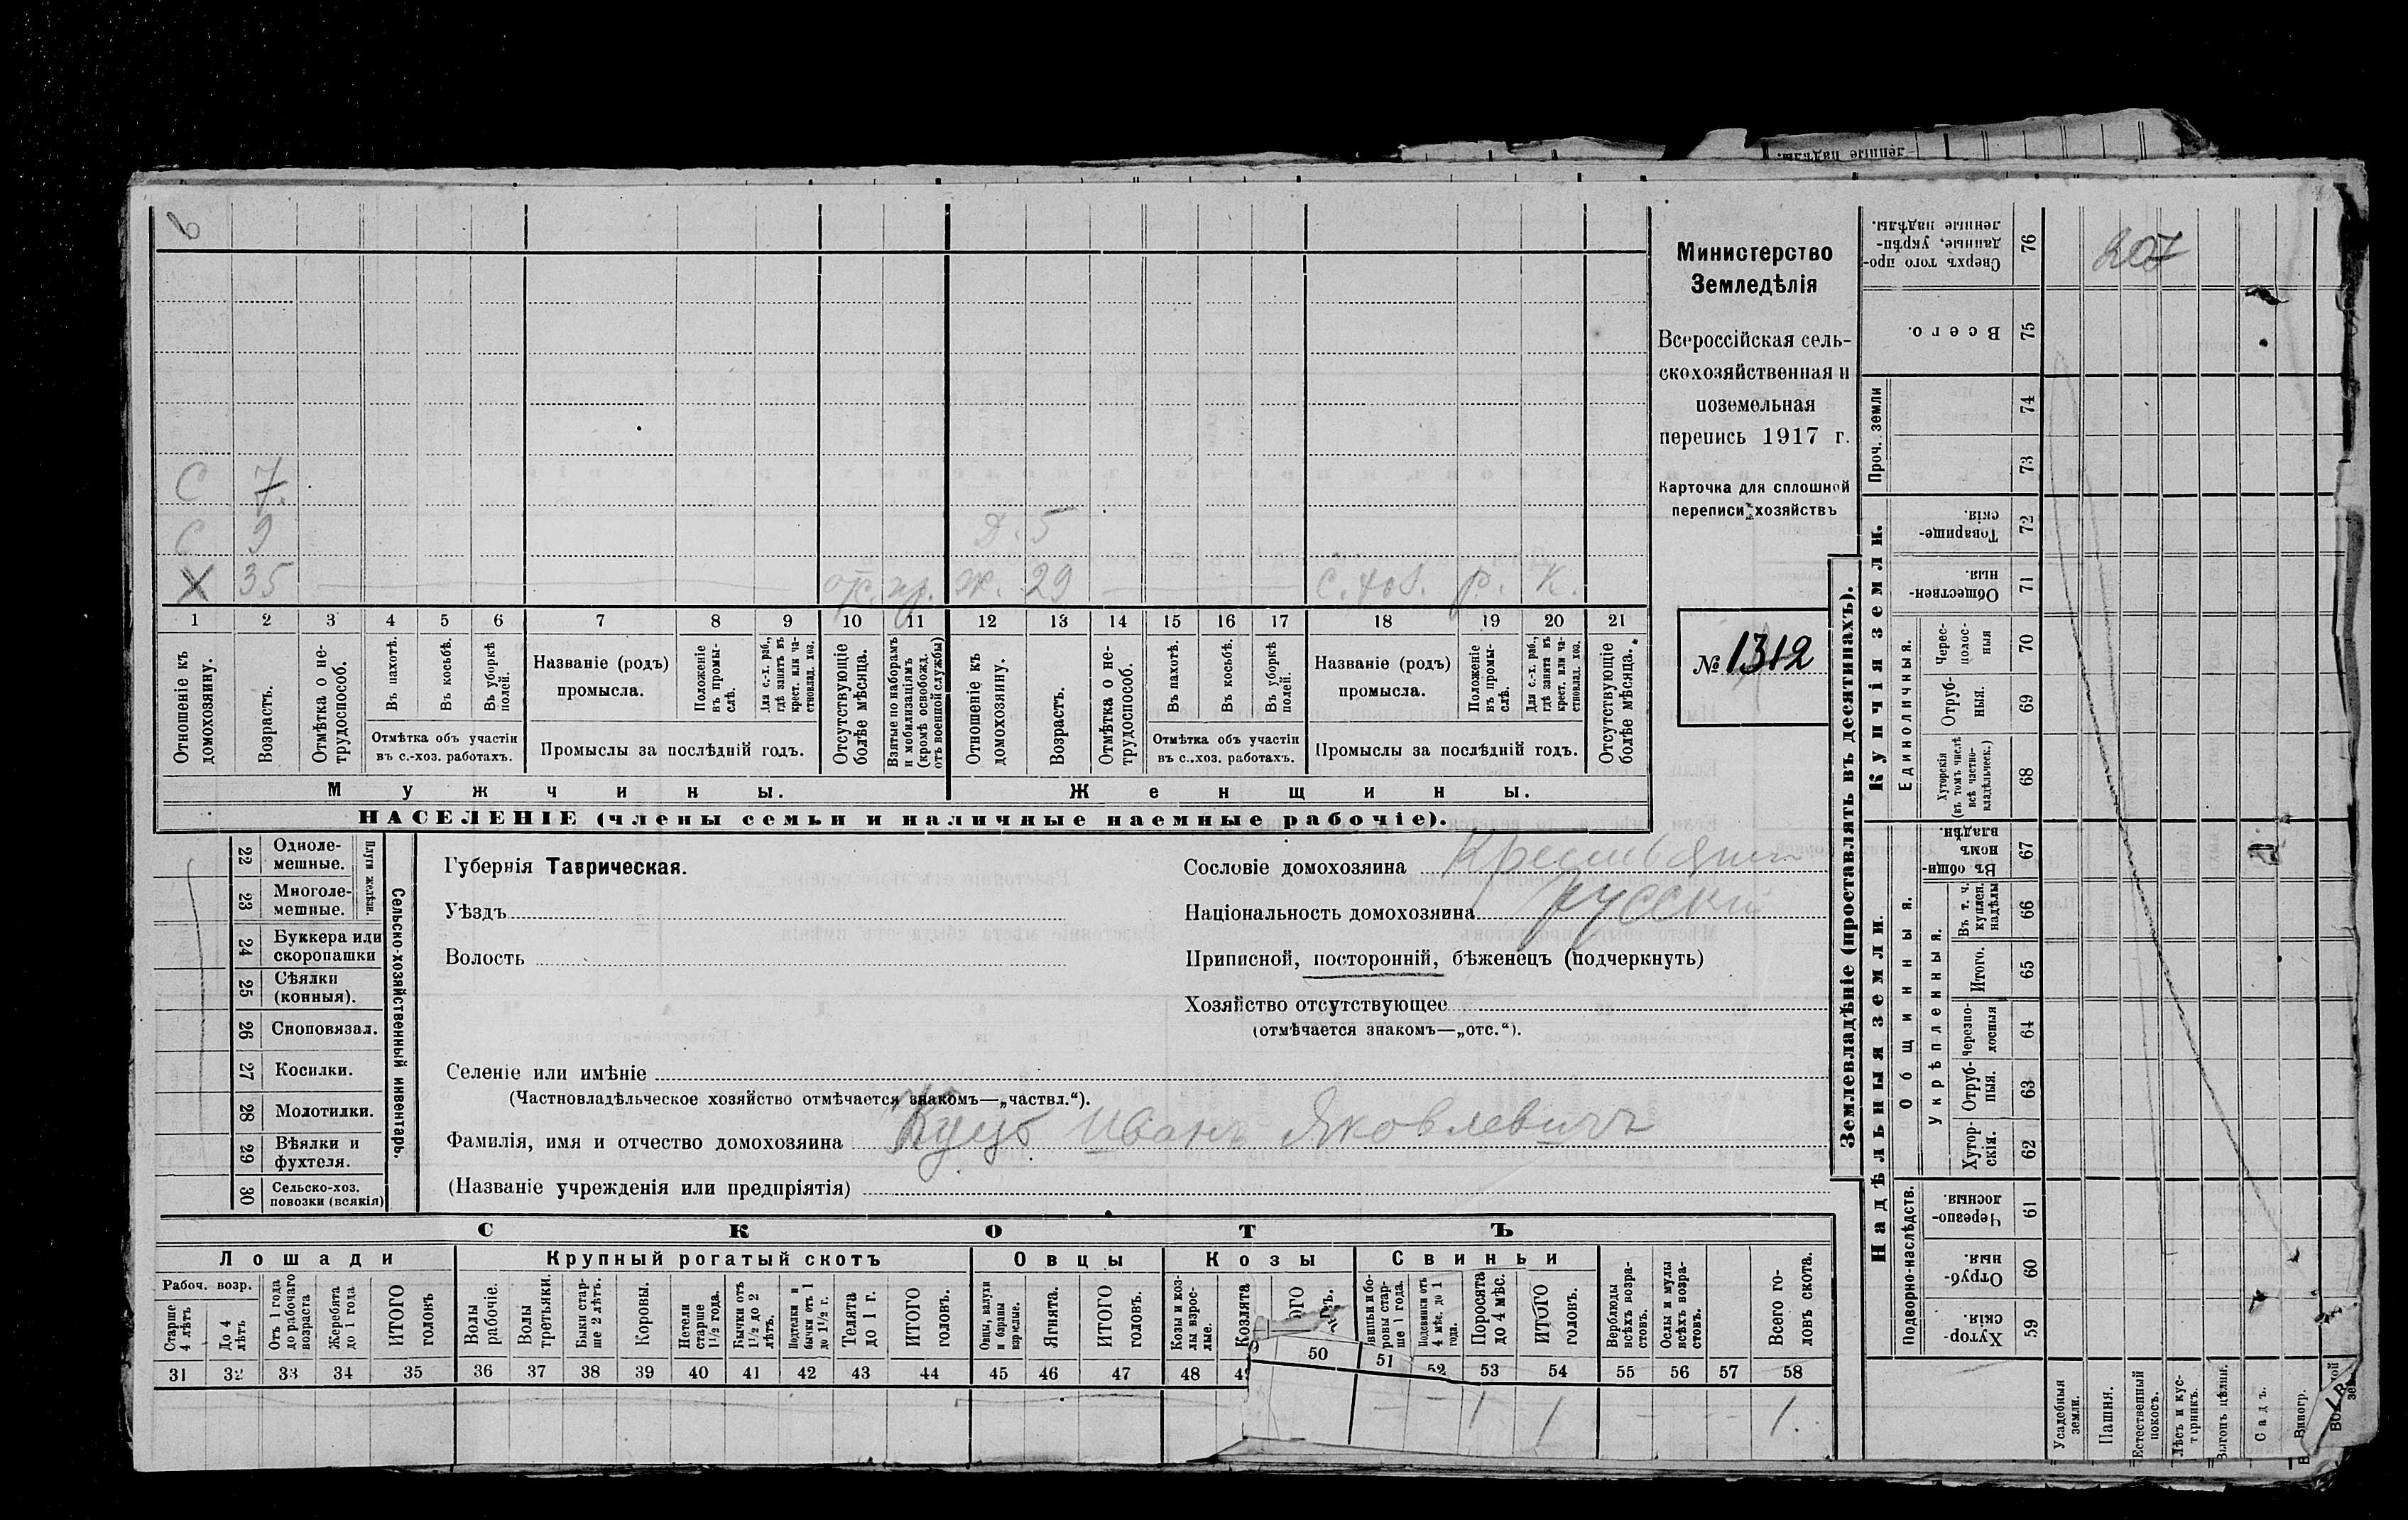 ленные надѣлы.
6
С 7.
С 9 Д. 5
Х 35 отс. пр. Ж. 29 р. К.
1 2 3 4 5 6 7 8 9 10 11 12 13 14 15 16 17 18 19 20 21
Отношеніе къ домохозяину.
Возрастъ.
Отмѣтка о нетрудоспособ.
Въ пахотѣ.
Въ косьбѣ.
Въ уборкѣ полей.
Отмѣтка объ участіи
въ с.-хоз. работахъ.
Названіе (родъ)
промысла.
Положеніе въ промыслѣ.
Для с.-х. раб., гдѣ занятъ въ крест. или частновлад. хоз.
Промыслы за послѣдній годъ.
Отсутствующіе болѣе мѣсяца.
Взятые по наборамъ и мобилизаціямъ (кромѣ освобожд. отъ военной службы)
Отношеніе къ домохозяину.
Возрастъ.
Отмѣтка о нетрудоспособ.
Въ пахотѣ.
Въ косьбѣ.
Въ уборкѣ полей.
Отмѣтка объ участіи
въ с.-хоз. работахъ.
Названіе (родъ)
промысла.
Положеніе въ промыслѣ.
Для с.-х. раб., гдѣ занята въ крест. или частновлад. хоз.
Промыслы за послѣдній годъ.
Отсутствующіе болѣе мѣсяца.
Мужчины. Женщины.
НАСЕЛЕНІЕ (члены семьи и наличные наемные рабочіе).
Министерство
Земледѣлія
Всероссійская сель-
скохозяйственная и
поземельная
перепись 1917 г.
Карточка для сплошной
переписи хозяйствъ
№ 1312
22 Одноле-
мешные.
23 Многоле-
мешные.
Плуги желѣзн.
24 Буккера или
скоропашки
25 Сѣялки
(конныя).
26 Сноповязал.
27 Косилки.
28 Молотилки.
29 Вѣялки и
фухтеля.
30 Сельско-хоз.
повозки (всякія)
Сельско-хозяйственный инвентарь.
Губернія Таврическая.
Уѣздъ
Волость
Селеніе или имѣніе
(Частновладѣльческое хозяйство отмѣчается знакомъ—„частвл.“).
Фамилія, имя и отчество домохозяина Куцъ Иванъ Яковлевичъ
(Названіе учрежденія или предпріятія)
Сословіе домохозяина
Національность домохозяина русскій
Приписной, посторонній, бѣженецъ (подчеркнуть)
Хозяйство отсутствующее
(отмѣчается знакомъ—„отс.“).
СКОТЪ
Лошади Крупный рогатый скотъ Овцы Козы Свиньи
Рабоч. возр.
Старше 4 лѣтъ
До 4 лѣтъ
Отъ 1 года до рабочаго возраста
Жеребята до 1 года
ИТОГО головъ
Волы рабочіе.
Волы третьяки.
Быки старше 2 лѣтъ.
Коровы.
Нетели старше 1½ года.
Бычки отъ 1½ до 2 лѣтъ.
Подтелки и бычки отъ 1 до 1½ г.
Телята до 1 г.
ИТОГО головъ.
Овцы, валухи и бараны взрослые.
Ягнята.
ИТОГО головъ.
Козы и козлы взрослые.
Козлята
Подсвинки отъ 4 мѣс. до 1 года.
Поросята до 4 мѣс.
ИТОГО головъ.
Верблюды всѣхъ возрастовъ.
Ослы и мулы всѣхъ возрастовъ.
Всего головъ скота.
31 32 33 34 35 36 37 38 39 40 41 42 43 44 45 46 47 48 50 51 52 53 54 55 56 57 58
1 1 1.
Землевладѣніе (проставлять въ десятинахъ).
Купчія земли.
Надѣльныя земли.
Сверхъ того проданные, укрѣпленные надѣлы. 76
Всего. 75
Проч. земли 74 73
Товарищескія. 72
Общественныя. 71
Единоличныя.
Чересполосныя 70
Отрубныя. 69
Хуторскія (въ томъ числѣ всѣ частновладѣльческ.) 68
Въ общиномъ владѣн. 67
Общинныя.
Укрѣпленныя.
Въ т. ч. куплен. надѣлы 66
Итого. 65
Черезполосныя 64
Отрубныя. 63
Хуторскія. 62
Подворно-наслѣдств.
Черезполосныя. 61
Отрубныя. 60
Хуторскія. 59
207
Усадебныя земли.
Пашня.
Естественный покосъ.
Лѣсъ и кустарникъ.
Выгонъ цѣлин.
Садъ.
Виногр.